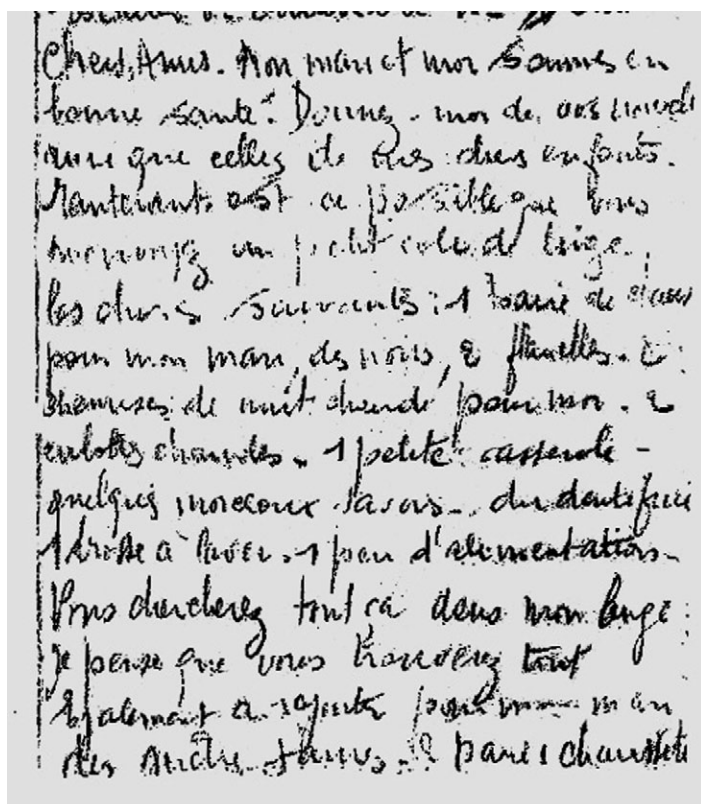 Chers Amis. Mon mari et moi sommes en
bonne santé. Donnez-moi de vos nouvel
que celles de vos chers enfants.
Maintenant est ce possible que vous
un petit colis de linge.
les choses suivantes : 1 paire de
pour mon mari, des noirs, 2 flanelles. 2
chemises de nuit chaude pour moi. 2
culottes chaudes. 1 petite casserole -
quelques morceaux savons - du dentifrice
1 brosse à laver. 1 peu d'alimentation -
Vous chercherez tout ça dans mon linge
je pense que vous trouverez tout
Egalement a rajouter pour mon mari
des 2 paires chaussette